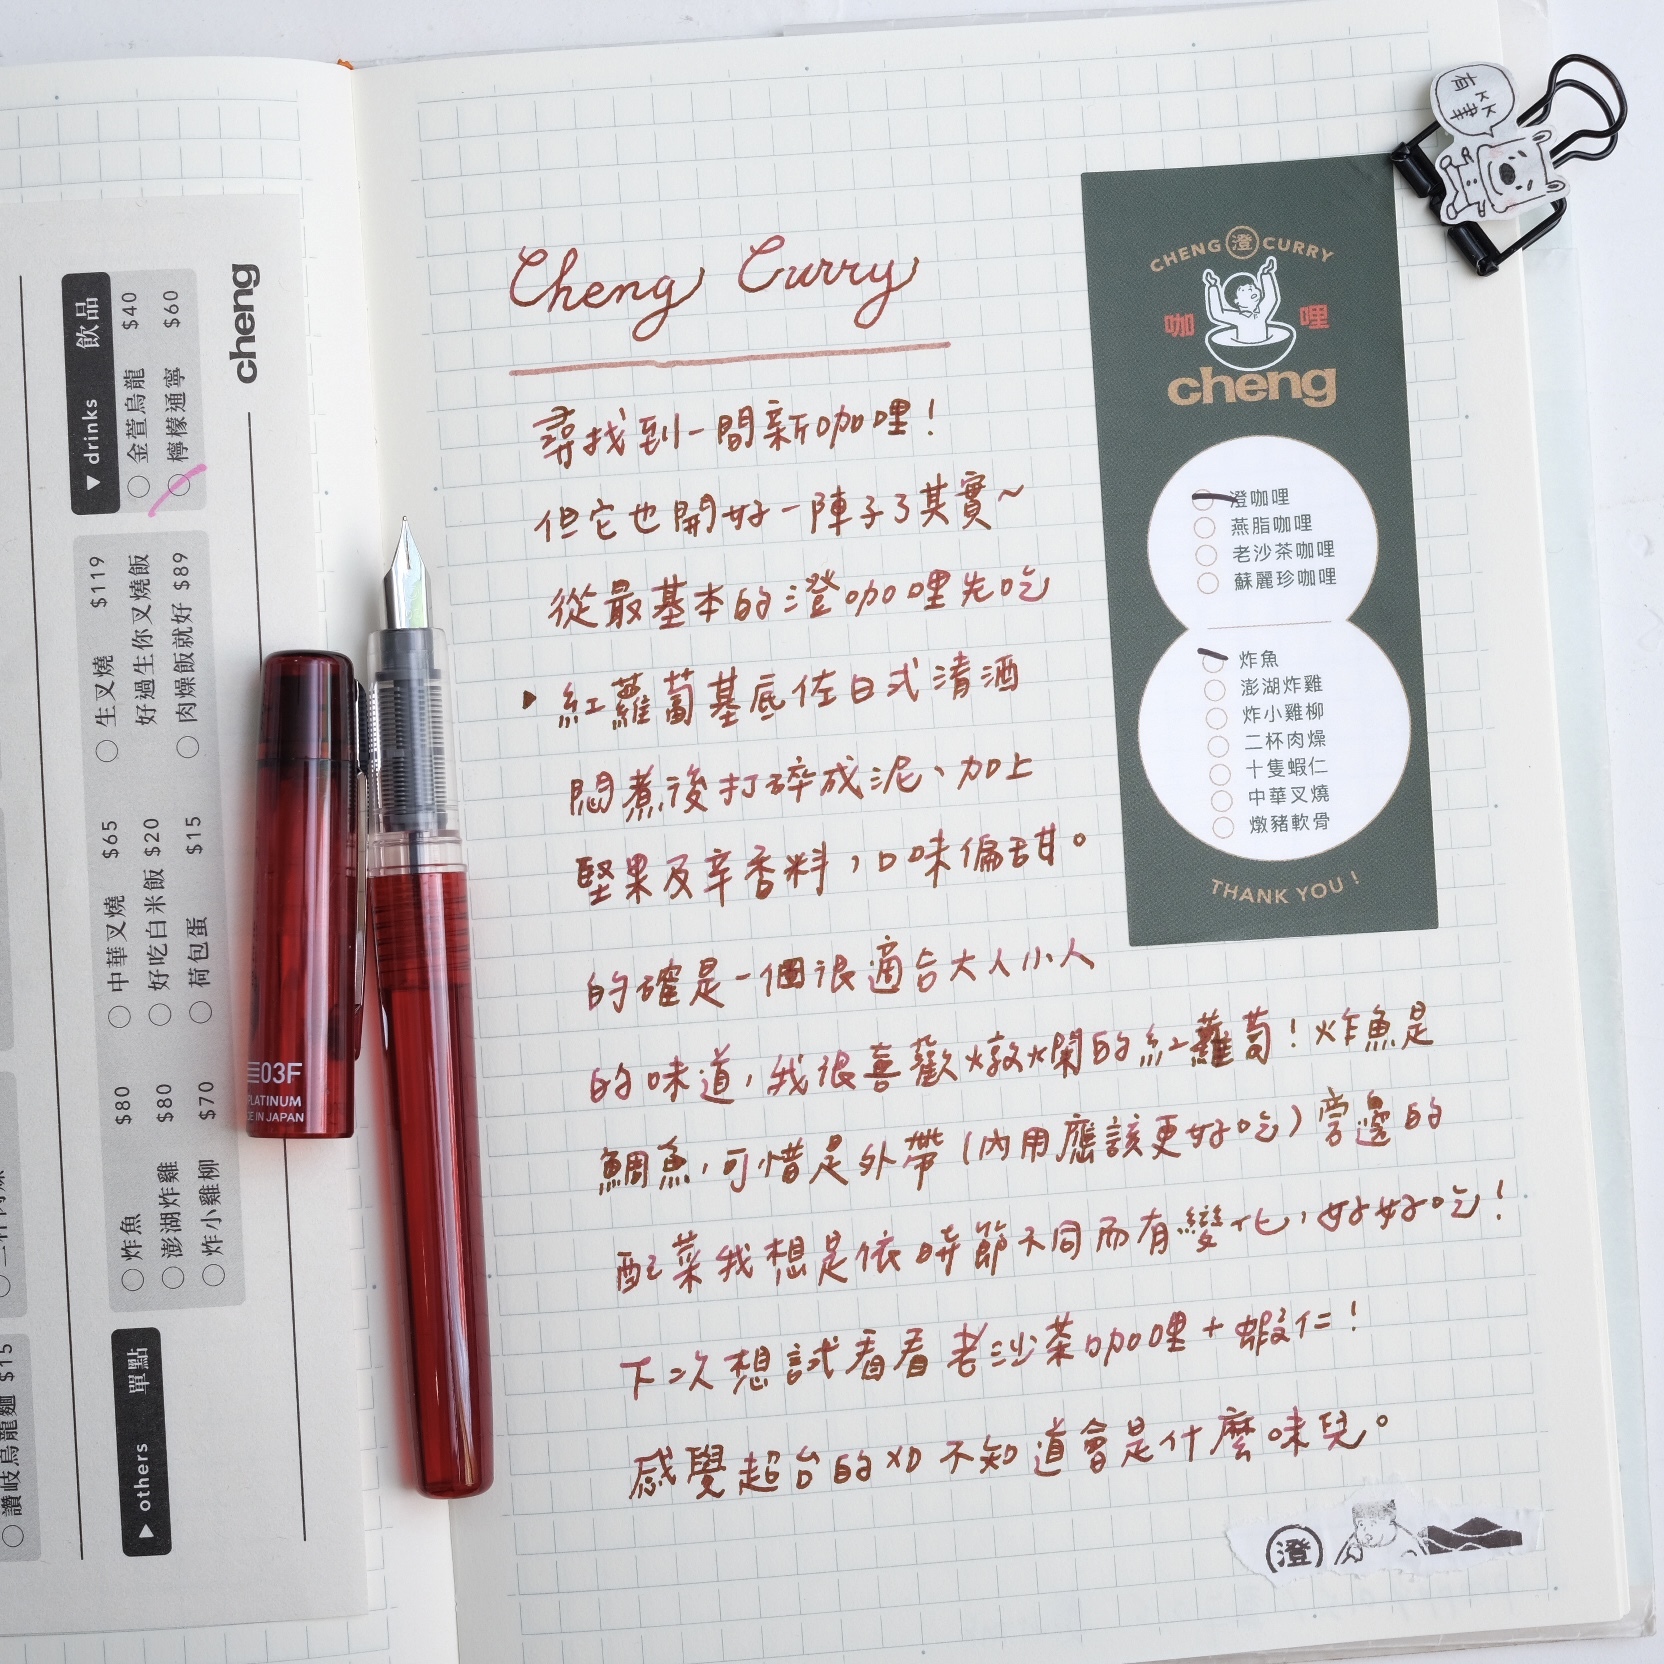 cheng
▼ drinks 飲品
○ 金萱烏龍 $40
○ 檸檬通寧 $60
○ 生叉燒 $119
好過生你叉燒飯
○ 肉燥飯就好 $89
○ 中華叉燒 $65
○ 好吃白米飯 $20
○ 荷包蛋 $15
▼ others 單點
○ 炸魚 $80
○ 澎湖炸雞 $80
○ 炸小雞柳 $70
○ 讚岐烏龍麵 $15
03F
PLATINUM
IN JAPAN
Cheng Curry
尋找到一間新咖哩！
但它也開好一陣子了其實～
從最基本的澄咖哩先吃
▸ 紅蘿蔔基底佐日式清酒
悶煮後打碎成泥、加上
堅果及辛香料，口味偏甜。
的確是一個很適合大人小人
的味道，我很喜歡燉爛的紅蘿蔔！炸魚是
鯛魚，可惜是外帶（內用應該更好吃）旁邊的
配菜我想是依時節不同而有變化，好好吃！
下次想試看看老沙茶咖哩＋蝦仁！
感覺超台的XD 不知道會是什麼味兒。
CHENG 澄 CURRY
咖哩
cheng
澄咖哩
燕脂咖哩
老沙茶咖哩
蘇麗珍咖哩
炸魚
澎湖炸雞
炸小雞柳
二杯肉燥
十隻蝦仁
中華叉燒
燉豬軟骨
THANK YOU !
澄